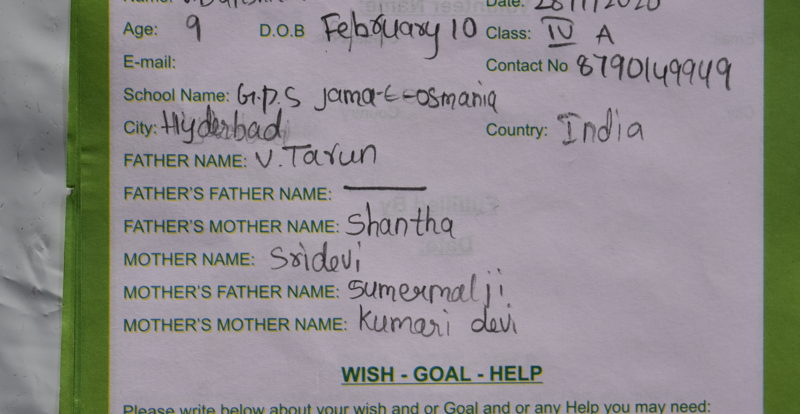 Date: 28/1/2020
Age: 9 D.O.B February 10 Class: IV A
E-mail: Contact No 8790149949
School Name: G.P.S Jama-E-osmania
City: Hyderbad Country: India
FATHER NAME: V.Tarun
FATHER'S FATHER NAME: ———
FATHER'S MOTHER NAME: Shantha
MOTHER NAME: Sridevi
MOTHER'S FATHER NAME: Sumermalji
MOTHER'S MOTHER NAME: Kumari devi
WISH - GOAL - HELP
Please write below about your wish and or Goal and or any Help you may need: